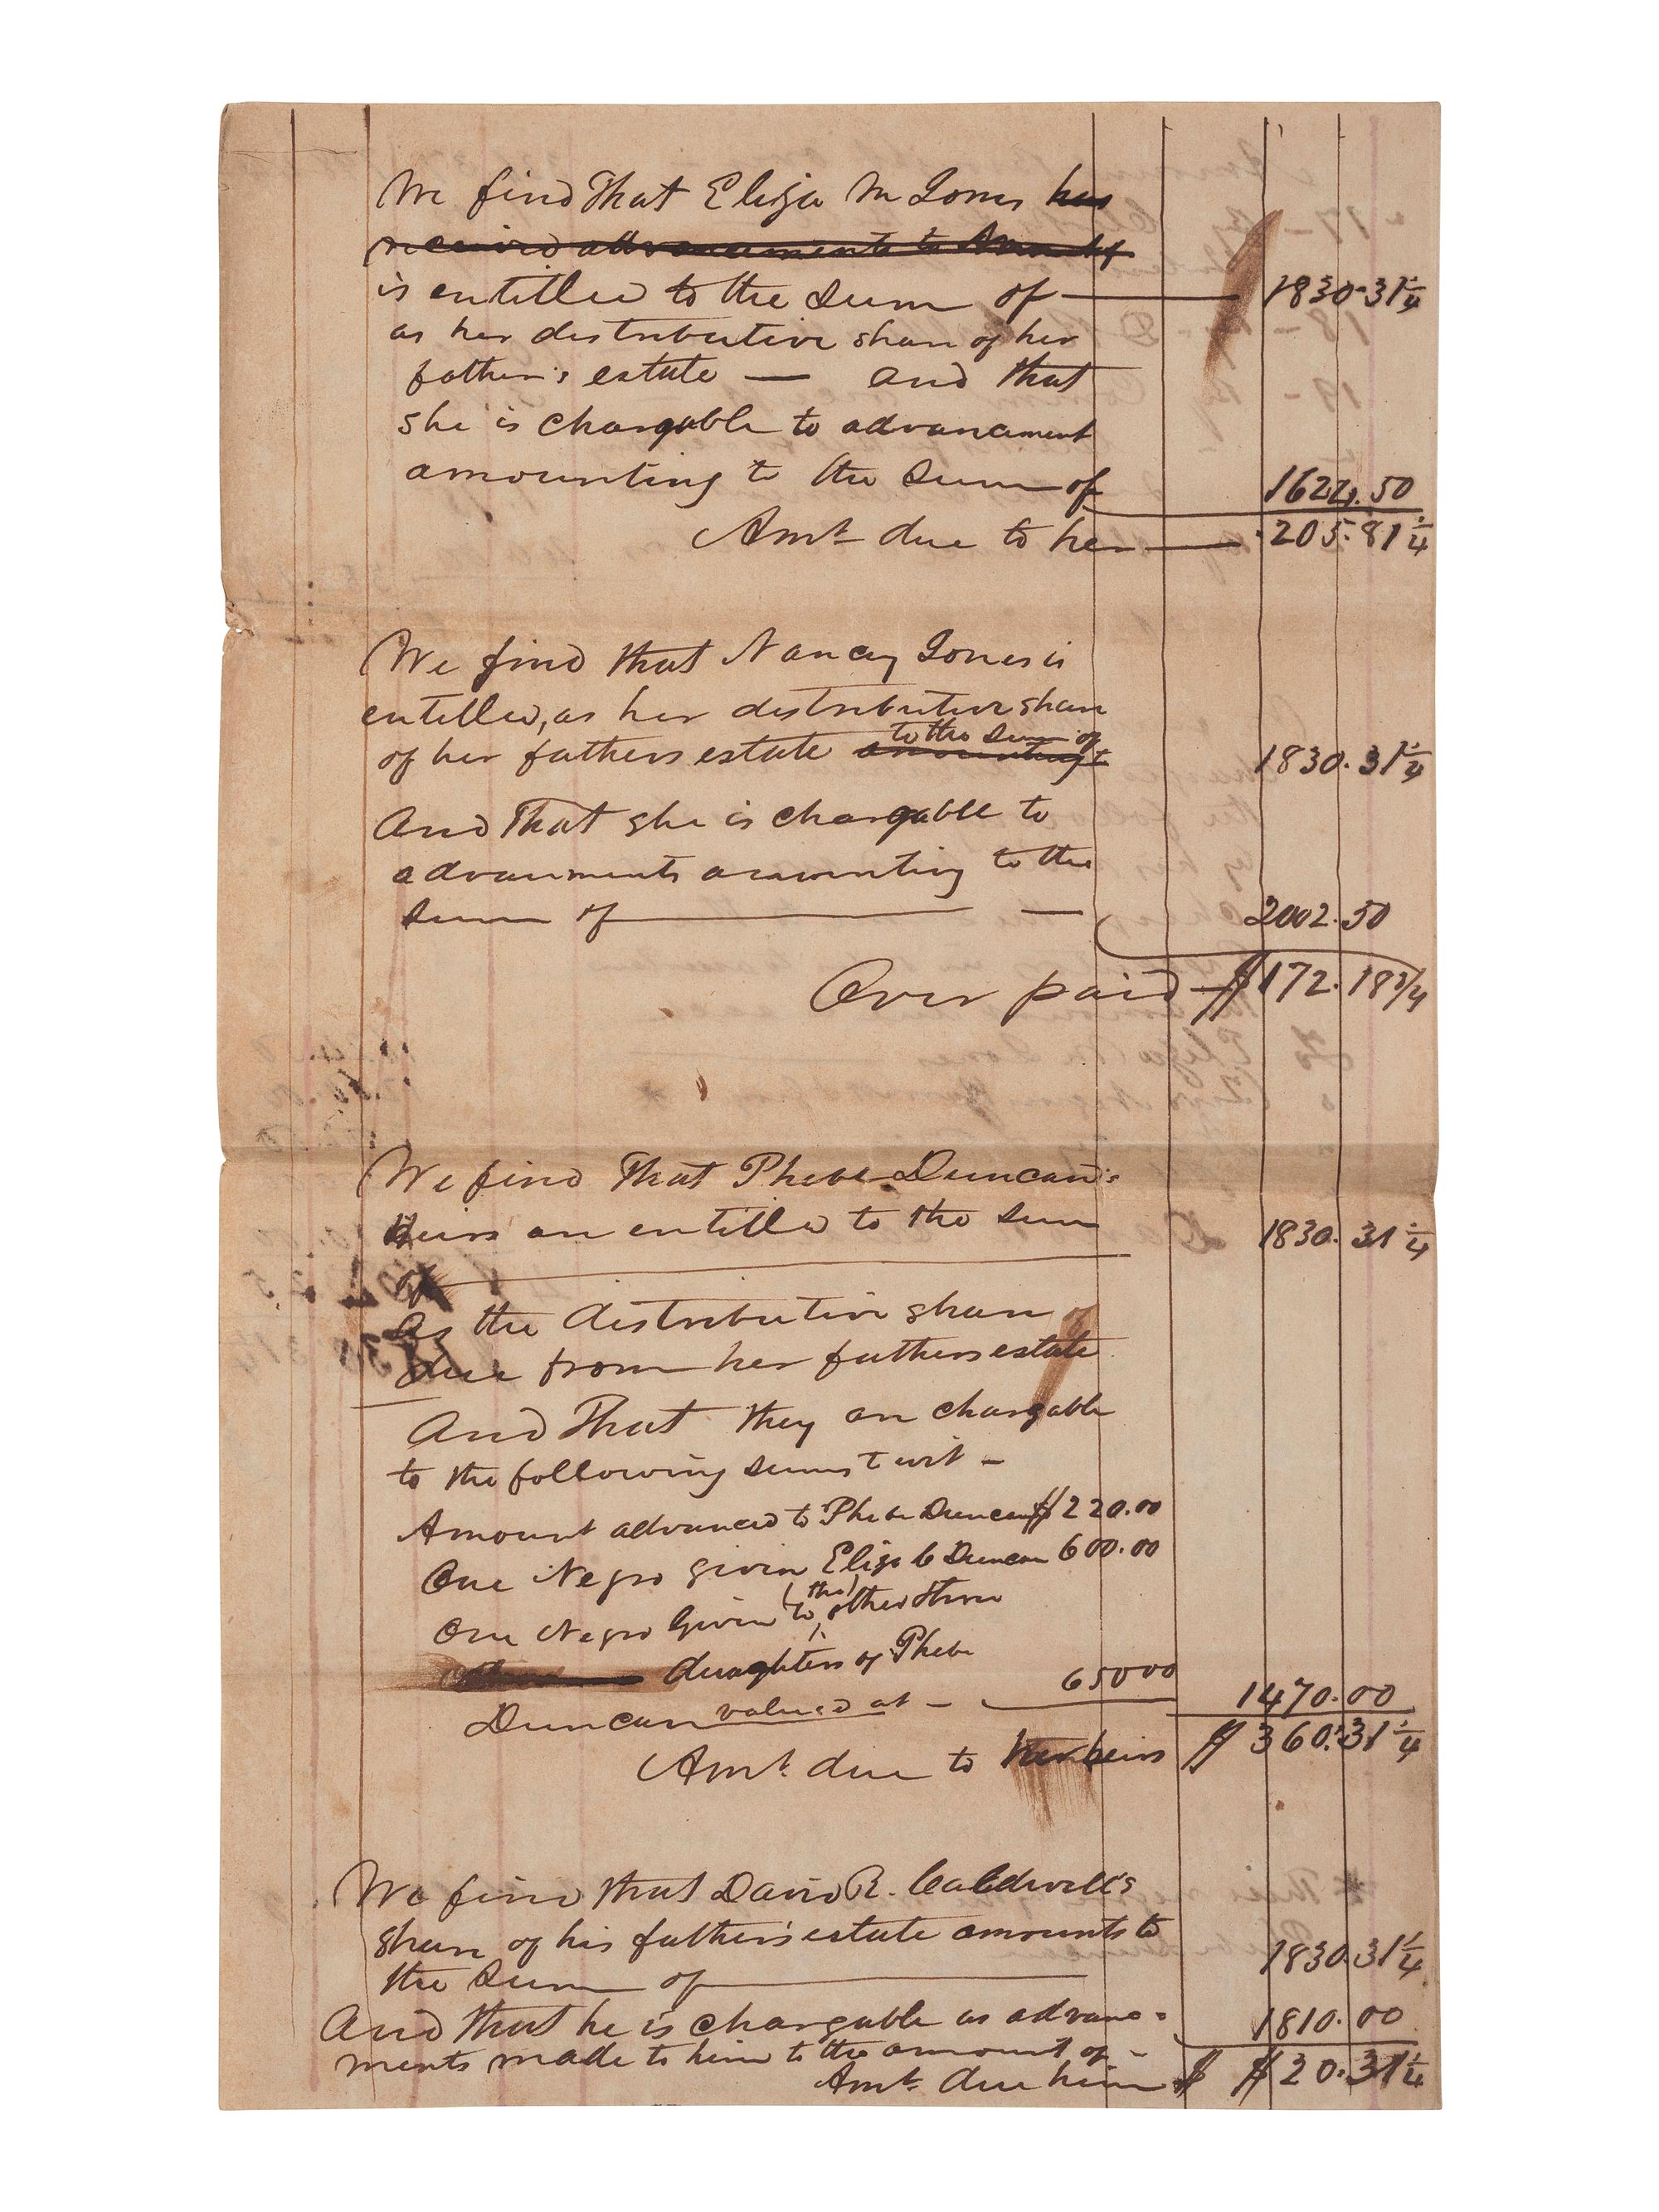 We find That Eliza M Jones has
received advancements to Amount of
is entitled to the sum of — 1830.31 1/4
as her distributive share of her
father's estate — and that
she is chargable to advancement
amounting to the sum of 1624.50
Amt due to her — 205.81 1/4
We find that Nancy Jones is
entitled, as her distributive share
to the sum of
of her fathers estate amounting to 1830.31 1/4
And That she is chargable to
advancments amounting to the
sum of — 2002.50
Over paid — $172.18 3/4
We find That Phebe Duncan's
heirs are entitled to the sum 1830.31 1/4
of
As the distributive share of
due from her fathers estate
And That they are chargable
to the following sums to wit —
Amount advanced to Phebe Duncan $220.00
One Negro given Eliza C Duncan 600.00
(the)
One Negro Given to other three
daughters of Phebe
Duncan valued at — 650 00 1470.00
Amt. due to her heirs $360.31 1/4
We find that David R. Caldwell's
share of his father's estate amounts to
the sum of — 1830.31 1/4
And that he is chargable as advance= 1810.00
ments made to him to the amount of —
Amt. due him $ $20.31 1/4